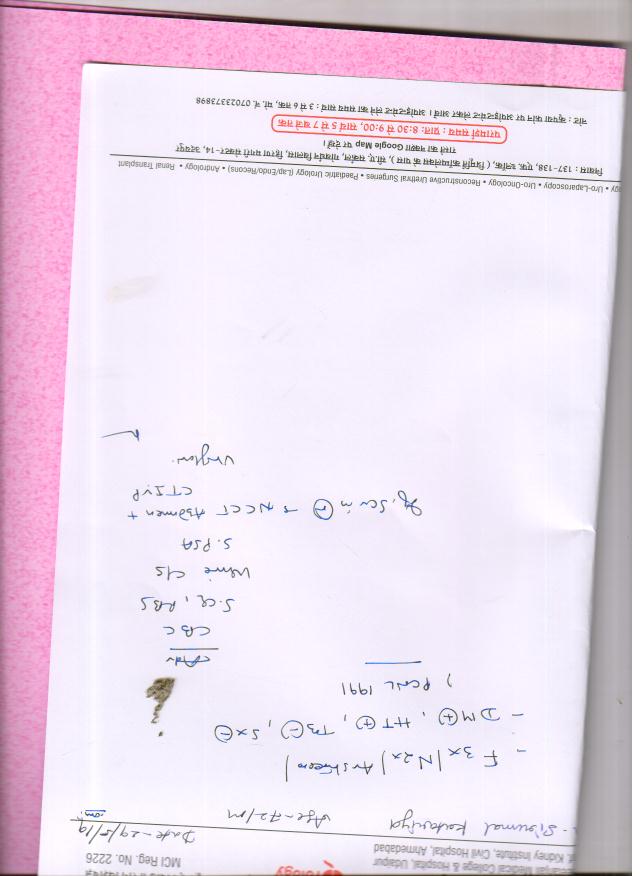 rology
MCI Reg. No. 2226
eetanjali Medical College & Hospital, Udaipur
Kidney Institute, Civil Hospital, Ahmedabad
Age-72/M
Date-29/5/19
- F 3x / N 2x /
- DM ⊕, HT ⊕, TB ⊖, Sx ⊖
PCNL 1991
Adv
CBC
S. Cr, RBS
Urine C/S
S. PSA
→ NCCT Abdomen +
CT IVP
Uroflow
gy • Uro-Laparoscopy • Uro-Oncology • Reconstructive Urethral Surgeries • Paediatric Urology (Lap/Endo/Recons) • Andrology • Renal Transplant
निवास : 137-138, एफ ब्लॉक, हिरण मगरी सेक्टर-14, उदयपुर
रास्ते का नक्शा Google Map पर देखें।
परामर्श समय : प्रातः 8:30 से 9:00, सायं 5 से 7 बजे तक
नोट : कृपया फोन पर अपॉइन्टमेन्ट लेकर आवें। अपॉइन्टमेन्ट लेने का समय सायं : 3 से 6 तक, मो. नं. 07023373898